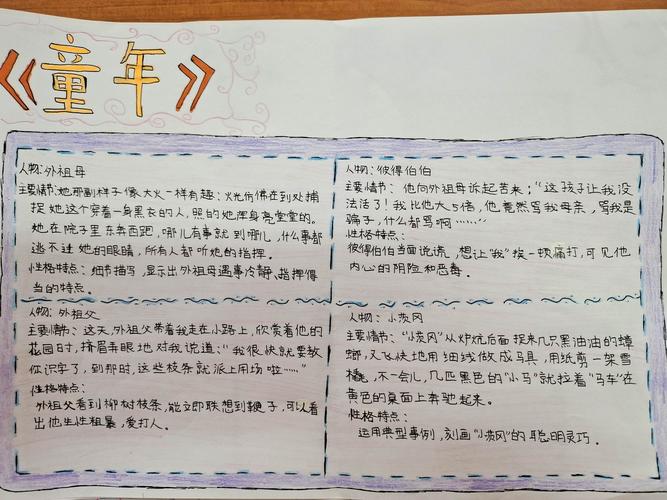 《童年》
人物：外祖母
主要情节：她那副样子像大火一样有趣：火光仿佛在到处捕
捉她这个穿着一身黑衣的人，照的她浑身亮堂堂的。
她在院子里东奔西跑，哪儿有事就到哪儿，什么事都
逃不过她的眼睛，所有人都听她的指挥。
性格特点：细节描写，显示出外祖母遇事冷静、指挥得
当的特点。
人物：彼得伯伯
主要情节：他向外祖母诉起苦来："这孩子让我没
法活了！我比他大5倍，他竟然骂我母亲，骂我是
骗子，什么都骂啊……"
性格特点：
彼得伯伯当面说谎，想让"我"挨一顿痛打，可见他
内心的阴险和恶毒。
人物：外祖父
主要情节：这天，外祖父带着我走在小路上，欣赏着他的
花园时，挤眉弄眼地对我说道："我很快就要教
你识字了，到那时，这些枝条就派上用场啦……"
性格特点：
外祖父看到柳树枝条，能立即联想到鞭子，可以看
出他生性粗暴，爱打人。
人物：小茨冈
主要情节："小茨冈"从炉炕后面捉来几只黑油油的蟑
螂，又飞快地用细线做成马具，用纸剪一架雪
橇，不一会儿，几匹黑色的"小马"就拉着"马车"在
黄色的桌面上奔驰起来。
性格特点：
运用典型事例，刻画"小茨冈"的聪明灵巧。